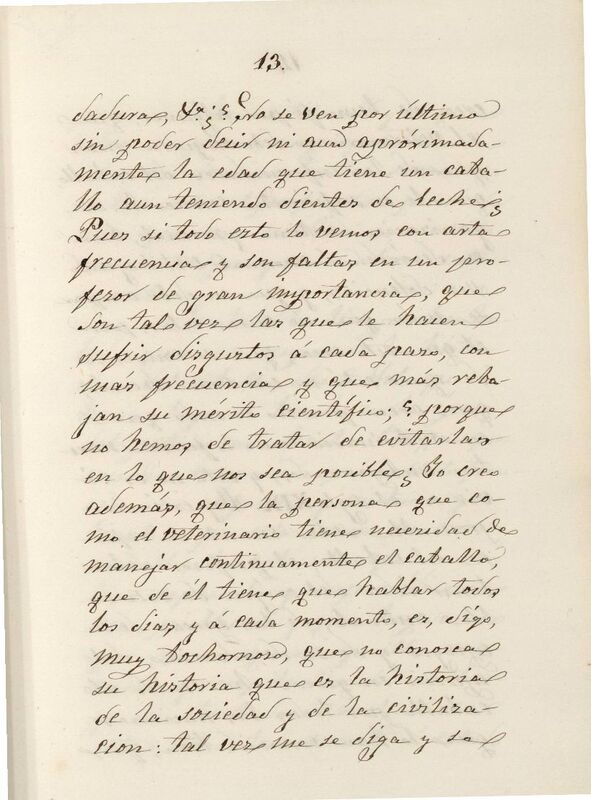 13.
dadura, &a.? ¿No se ven por último
sin poder decir ni aun apróximada-
mente la edad que tiene un caba-
llo aun teniendo dientes de leche?
Pues si todo esto lo vemos con arta
frecuencia y son faltas en un pro-
fesor de gran importancia, que
son tal vez las que le hacen
sufrir disgustos á cada paso, con
más frecuencia y que más reba-
jan su mérito científico; ¿porque
no hemos de tratar de evitarlas
en lo que nos sea posible? Yo creo
además, que la persona que co-
mo el veterinario tiene necesidad de
manejar continuamente el caballo,
que de él tiene que hablar todos
los dias y á cada momento, es, digo,
muy bochornoso, que no conosca
su historia que es la historia
de la sociedad y de la civiliza-
cion: tal vez me se diga y se